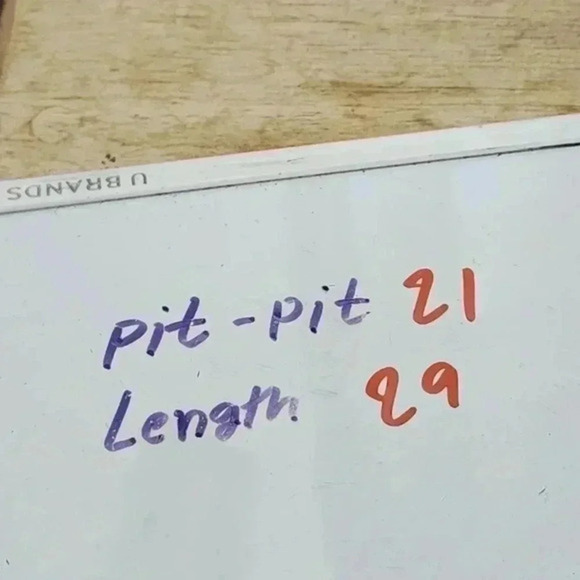 U BRANDS
pit-pit 21
Length 29